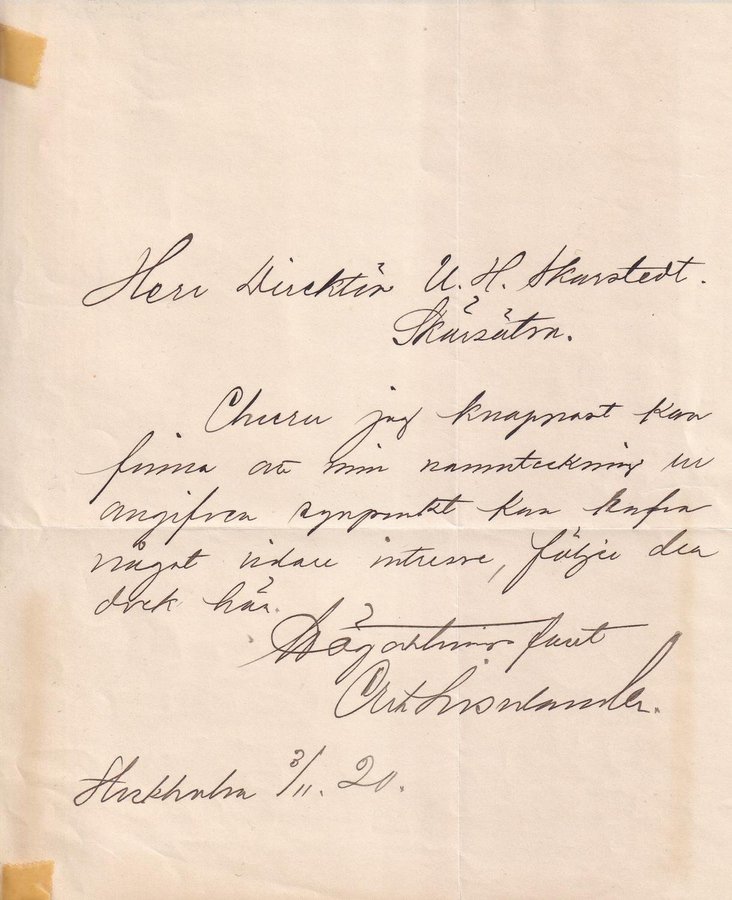 Herr Direktör U. H. Skarstedt.
Skärsätra.
Churu jag knappast kan
finna att min namnteckning ur
angifven synpunkt kan hafva
något vidare intresse, följer den
dock här.
Högaktningsfullt
Stockholm 3/11. 20.